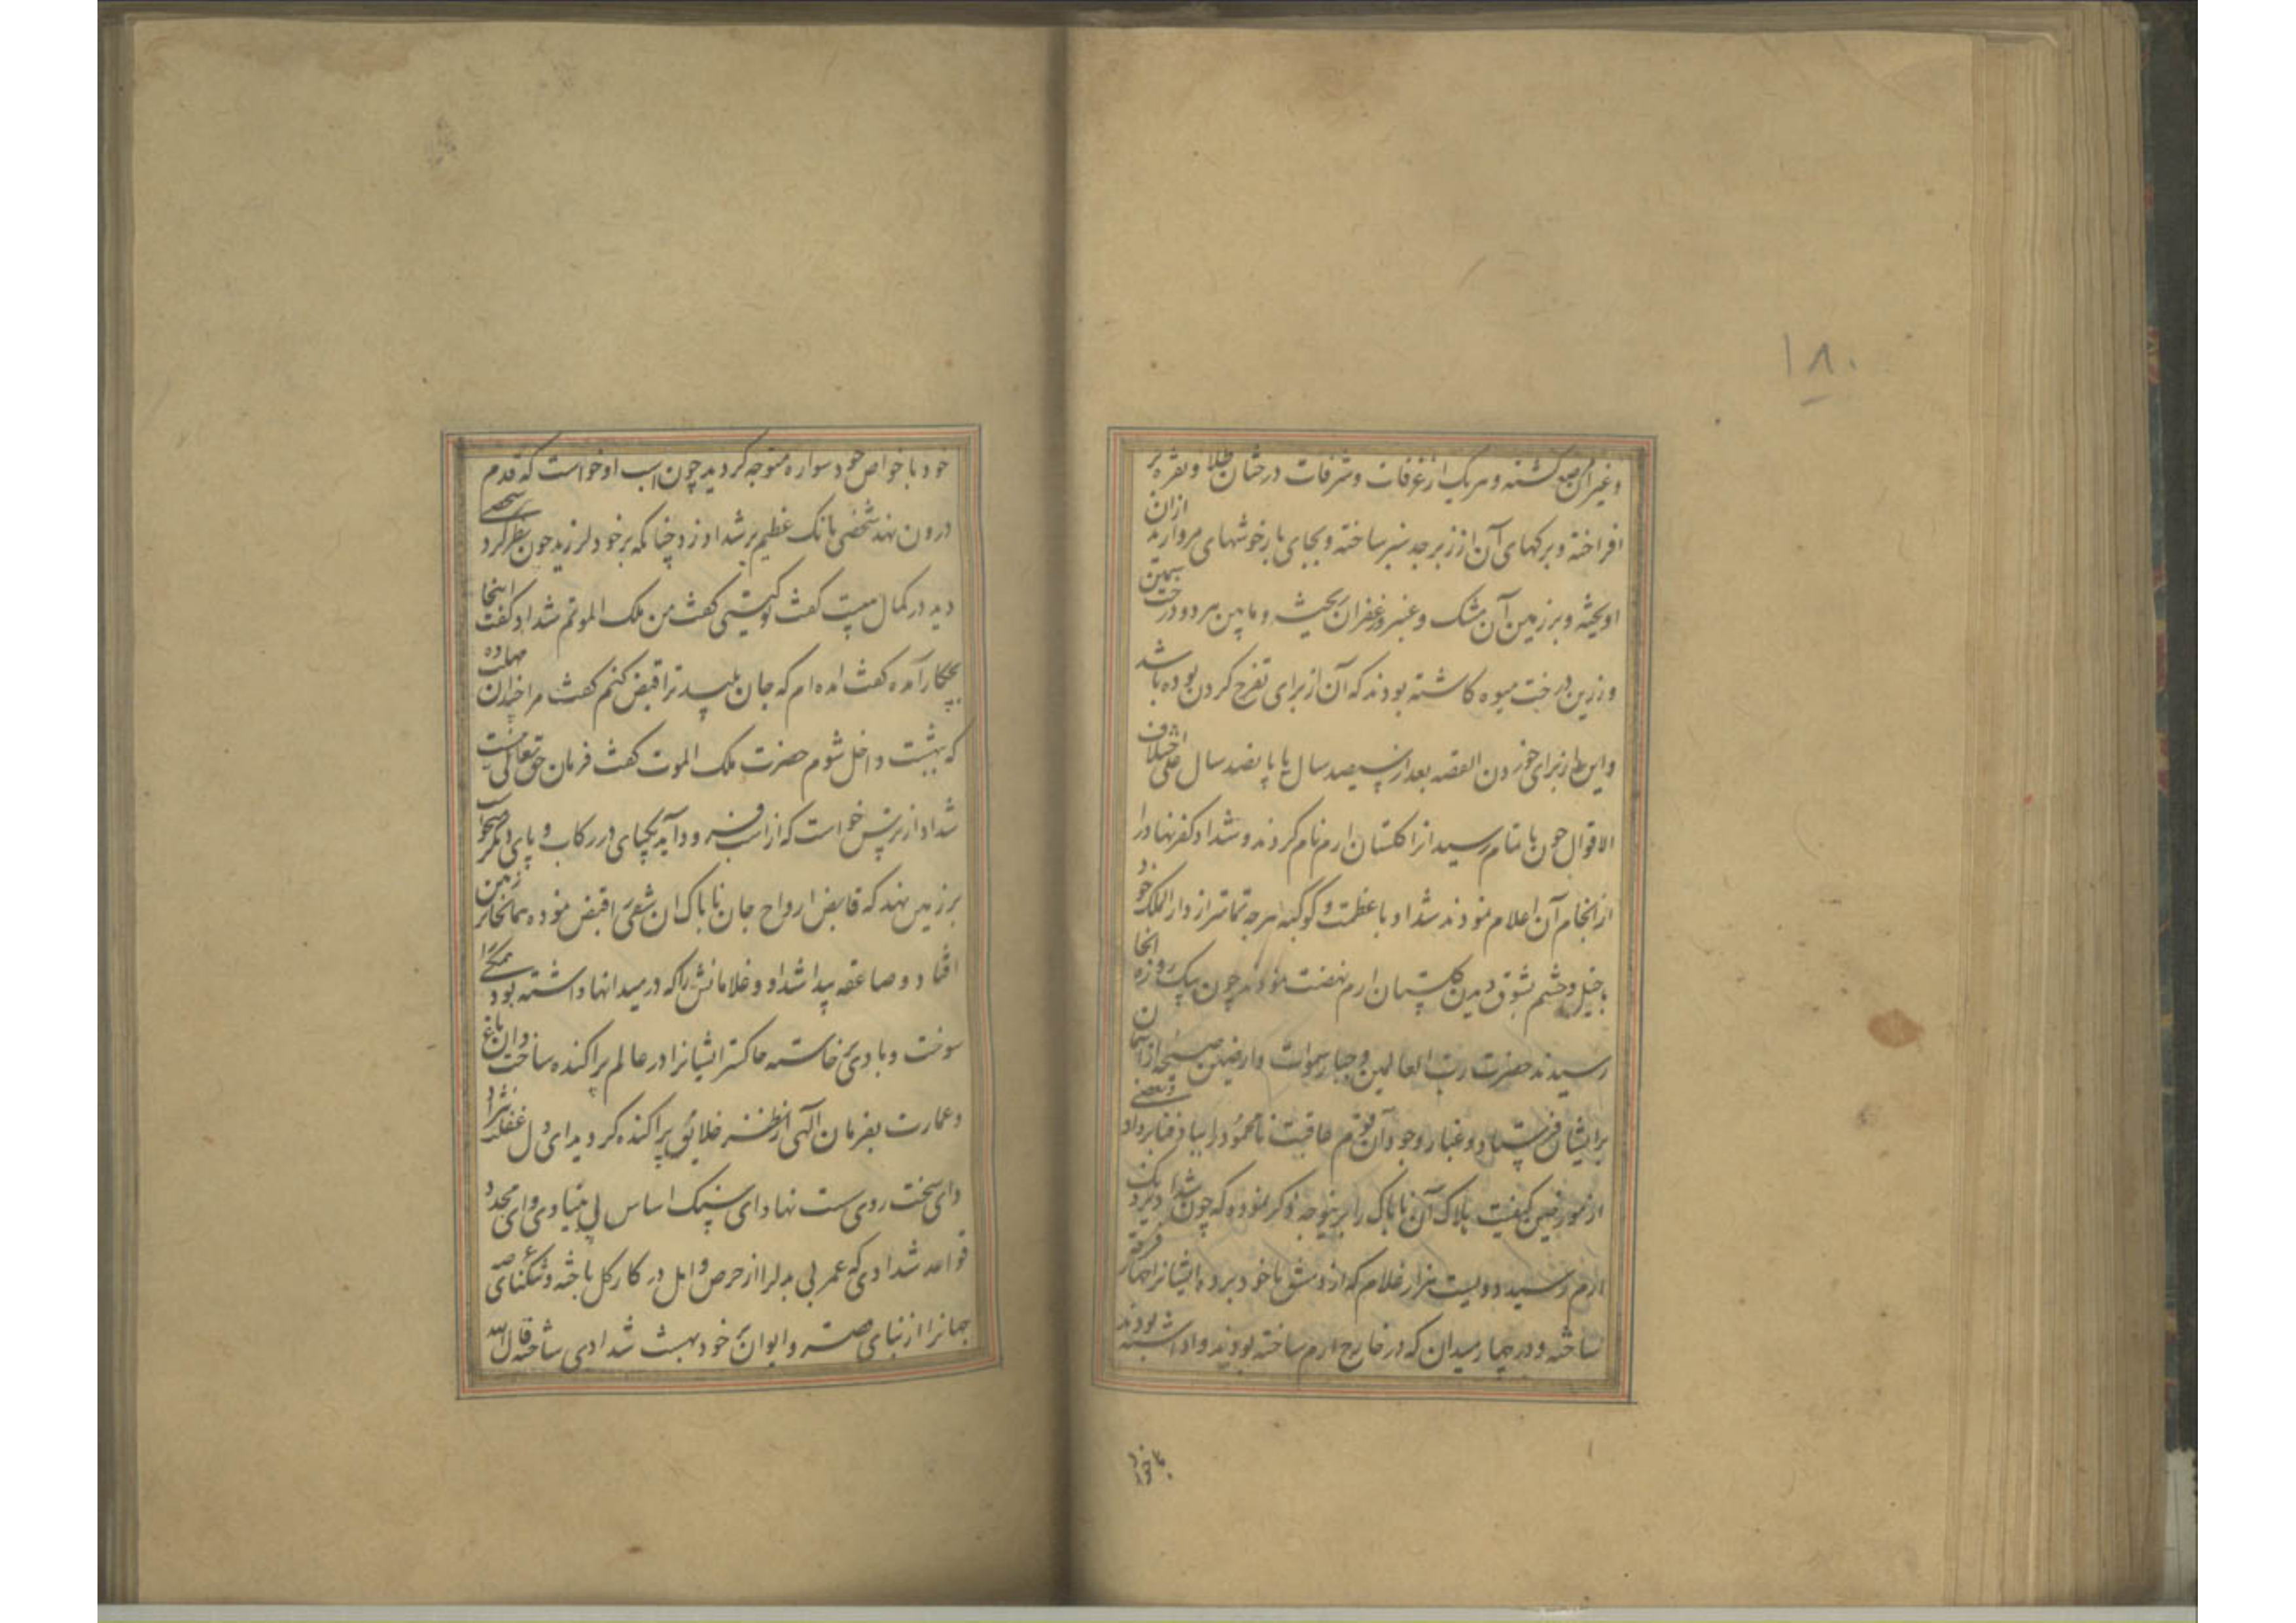 ۱۸۰
وغیر آن مرصع گشته و هر یک از غرفات و شرفات درختان طلا و نقره بر
افراخته و برکهای آن از زبرجد سبز ساخته و بجای بار خوشهای مروارید ازان
اویخته و بر زمین آن مشک و عنبر و زعفران بیخته و مابین هر دو درخت سیمین
و زرین درخت میوه کاشته بودند که آن از برای تفرج کردن بوده باشد
و این از برای خوردن القصه بعد از سیصد سال یا پانصد سال علی اختلاف
الاقوال چون باتمام رسید انرا کلستان ارم نام کردند و شداد کفر نهاد را
از انجام آن اعلام نمودند شداد با عظمت و کوکبه هر چه تمامتر از دار الملک خود
با خیل و حشم بشوق دیدن کلستان ارم نهضت نمودند چون بیک روزه انجا
رسیدند حضرت رب العالمین و جبار سموات و ارضین صیحه از اسمان
بر ایشان فرستاد و غبار وجود آن قوم عاقبت نامحمود را بباد فنا برداد و بعضی
از مورخین کیفیت هلاک آن ناپاک را برینوجه ذکر نموده که چون شداد نزدیک
ارم رسید دویست هزار غلام که از دمشق با خود برده ایشانرا چهار فرقه
ساخته و در چهار میدان که در خارج ارم ساخته بودند واداشته بودند
با خواص
خود با خواص خود سواره متوجه کردید چون اسب او خواست که قدم
درون نهد شخصی بانک عظیم بر شداد زد چنانکه بر خود لرزید چون نظر کرد شخصی
دید در کمال هیبت کفت تو کیستی کفت من ملک الموتم شداد کفت اینجا
بچکار آمده کفت امده ام که جان پلید ترا قبض کنم کفت مرا مهلت ده
که ببهشت داخل شوم حضرت ملک الموت کفت فرمان حق تعالی نیست
شداد از ترس خواست که از اسب فرود آید یکپای در رکاب و پای دیکر میخواست
بر زمین نهد که قابض ارواح جان ناپاک ان شقی را قبض نموده همانجا بر زمین
افتاد و صاعقه پیدا شد او و غلامانش را که در میدانها داشته بود همکی را
سوخت و بادی برخاسته خاکستر ایشانرا در عالم پراکنده ساخت و ان باغ
و عمارت بفرمان الهی از نظر خلایق پراکنده کردید ای دل غفلت نژاد
و ای سخت روی سست نهاد و ای سنک اساس بی بنیاد وی و ای مجدد
قواعد شدادی که عمر بی بدل را از حرص و امل در کار کل باخته و تنکنای عرصه
جهانرا از بنای قصر و ایوان بر خود بهشت شدادی ساخته قال الله